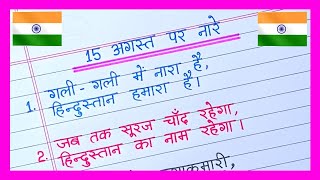 15 अगस्त पर नारे
1. गली - गली में नारा है,
हिन्दुस्तान हमारा है।
2. जब तक सूरज चाँद रहेगा,
हिन्दुस्तान का नाम रहेगा।